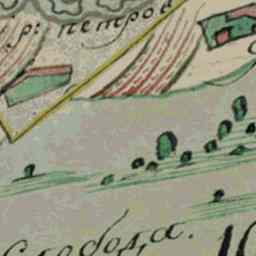 р: петров
Слобода.